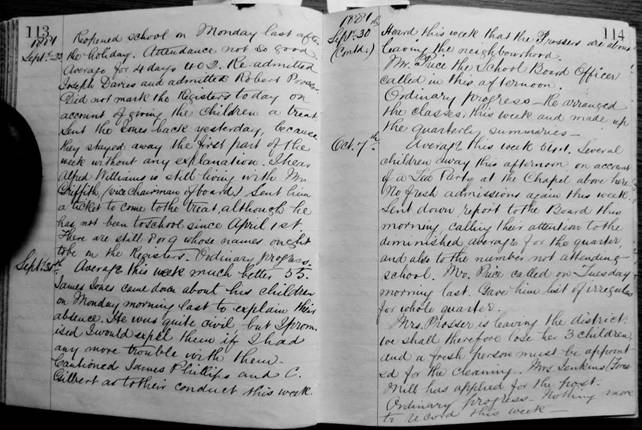 113
1881 Reopened school on Monday last after
Sept. 23 the holiday. Attendance not so good
Average for 4 days 40.2. Re admitted
Joseph Davies and admitted Robert Prosser
Did not mark the Registers today on
account of giving the children a treat
Sent the Jones back yesterday, because
they stayed away the first part of the
week without any explanation. I hear
Alfred Williams is still living with Mr.
Griffith, (vice chairman of board) Sent him
a ticket to come to the treat, although he
has not been to school since April 1st
There are still 8 or 9 whose names ought
to be on the Registers. Ordinary progress.
Sept. 30th Average this week much better 55.
James Jones came down about his children
on Monday morning last to explain their
absence. He was quite civil but I prom-
ised I would expel them if I had
any more trouble with them.
Cautioned James Phillips and C.
Gilbert as to their conduct this week.
114
1881
Sept. 30th Heard this week that the Prossers are
(Contd.) leaving the neighbourhood.
Mr. Pace the School Board Officer
called in this afternoon.
Ordinary progress — Re arranged
the classes, this week and made up
the quarterly summaries —
Oct. 7th Average this week 51. Several
children away this afternoon on account
of a Tea Party at the Chapel above here
No fresh admissions again this week.
Sent down, report to the Board this
morning, calling their attention to the
diminished average for the quarter,
and also to the number not attending
school. Mr. Pace called on Tuesday
morning last. Gave him list of irregulars
for whole quarter.
Mrs. Prosser is leaving the district.
we shall therefore lose her 3 children
and a fresh person must be appoint
ed for the cleaning. Mrs Jenkins
Mill has applied for the post.
Ordinary progress. Nothing more
to record this week —